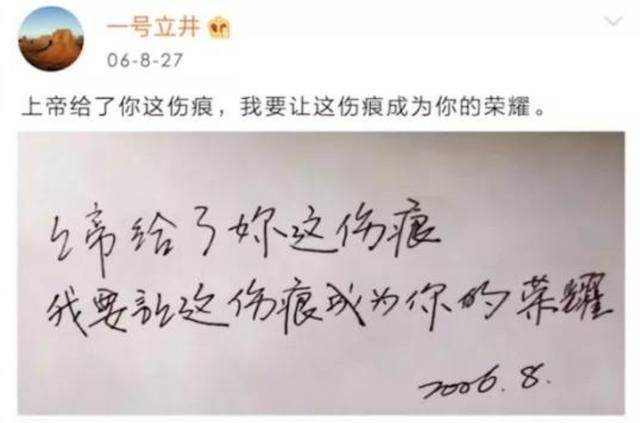 一号立井
06-8-27
上帝给了你这伤痕，我要让这伤痕成为你的荣耀。
上帝给了妳这伤痕
我要让这伤痕成为你的荣耀
2006.8.